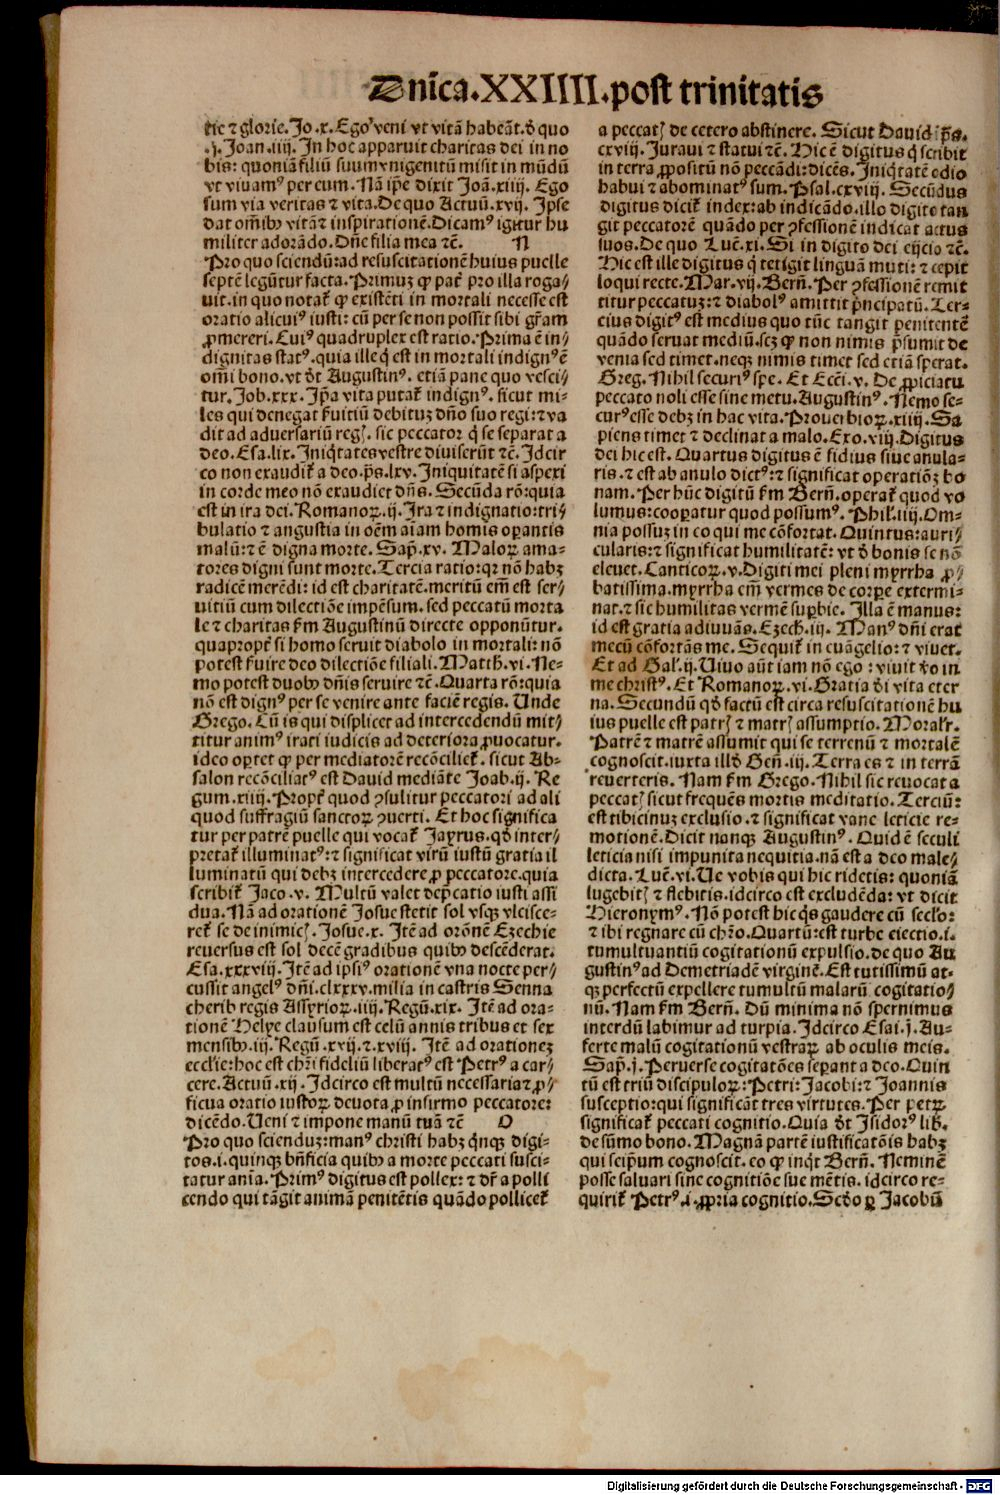 Dn̄ica.XXIIII.post trinitatis
tie ⁊ glorie. Jo .x. Ego veni vt vitā habeāt. ď quo
.j. Joan .iiij. In hoc apparuit charitas dei in no
bis: quoniā filiū suum vnigenitū misit in mūdū
vt viuamꝰ per eum. Nā ip̄e dixit Joā. xiiij. Ego
sum via veritas ⁊ vita. De quo Actuū .xvij. Ipse
dat om̄ibꝰ vitā ⁊ inspirationē. Dicamꝰ igitur hu
militer adorādo. Dn̄e filia mea ⁊c̄. N
Pro quo sciendū: ad resuscitationē huius puelle
septē legūtur facta. Primuꝫ ꝙ pat̄ pro illa roga⸗
uit. in quo notat̄ ꝙ existēti in mortali necesse est
oratio alicuiꝰ iusti: cū per se non possit sibi gr̄am
ꝓmereri. Cuiꝰ quadruplex est ratio. Prima ē in⸗
dignitas statꝰ. quia ille q̇ est in mortali indignꝰ ē
om̄i bono. vt ďt Augustinꝰ. etiā pane quo vesci⸗
tur. Job. xxx. Ip̄a vita putat̄ indignꝰ. sicut mi⸗
les qui denegat ẜuitiū debituꝫ dn̄o suo regi: ⁊ va
dit ad aduersariū regꝭ. sic peccator q̇ se separat a
deo. Esa. lix. Iniq̇tates vestre diuiserūt ⁊c̄. Idcir
co non exaudit̄ a deo. p̄s. lxv. Iniquitatē si aspexi
in corde meo nō exaudiet dn̄s. Secūda rō: quia
est in ira dei. Romanoꝝ .ij. Ira ⁊ indignatio: tri⸗
bulatio ⁊ angustia in oēm aīam homis operantis
malū: ⁊ ē digna morte. Sap̄. xv. Maloꝝ ama⸗
tores digni sunt morte. Tercia ratio: qr nō habꝫ
radicē merēdi: id est charitatē. meritū em̄ est ser⸗
uitiū cum dilectiōe impēsum. sed peccatū morta
le ⁊ charitas ẜm Augustinū directe opponūtur.
quapropt̄ si homo seruit diabolo in mortali: nō
potest ẜuire deo dilectiōe filiali. Matth. vi. Ne⸗
mo potest duobꝰ dn̄is seruire ⁊c̄. Quarta rō: quia
nō est dignꝰ per se venire ante faciē regis. Unde
Grego. Cū is qui displicet ad intercedendū mit⸗
titur animꝰ irati iudicis ad deteriora ꝓuocatur.
ideo oꝑtet ꝙ per mediatorē recōciliet̄. sicut Ab⸗
salon recōciliatꝰ est Dauid mediāte Joab. ij. Re
gum. xiiij. Propt̄ quod ꝯsulitur peccatori ad ali
quod suffragiū sanctoꝝ ꝯuerti. Et hoc significa
tur per patrē puelle qui vocat̄ Jayrus. qď inter⸗
pretat̄ illuminatꝰ: ⁊ significat virū iustū gratia il
luminatū qui debꝫ intercedere ꝓ peccatore. quia
scribit̄ Jaco. v. Multū valet dep̄catio iusti assi
dua. Nā ad orationē Josue stetit sol vsqꝫ vlcisce⸗
ret̄ se de inimicꝭ. Josue. x. Itē ad orōnē Ezechie
reuersus est sol decē gradibus quibꝰ descēderat.
Esa. xxxviij. Itē ad ipsiꝰ orationē vna nocte per⸗
cussit angelꝰ dn̄i. clxxxv. milia in castris Senna
cherib regis Assyrioꝝ. iiij. Regū. xix. Itē ad ora⸗
tionē Helye clausum est celū annis tribus et sex
mensibꝰ. iij. Regū .xvij. ⁊ .xviij. Itē ad orationeꝫ
eccl̄ie: hoc est chr̄i fideliū liberatꝰ est Petrꝰ a car⸗
cere. Actuū .xij. Idcirco est multū necessaria ⁊ ꝓ⸗
ficua oratio iustoꝝ deuota ꝓ infirmo peccatore:
dicēdo. Ueni ⁊ impone manū tuā ⁊c̄ O
Pro quo sciendꝫ: manꝰ christi habꝫ q̇nqꝫ digi⸗
tos. i. quinqꝫ bn̄ficia quibꝰ a morte peccati susci⸗
tatur aīa. Primꝰ digitus est pollex: ⁊ dr̄ a polli
cendo qui tāgit animā penitētis quādo pollicet̄
a peccatꝭ de cetero abstinere. Sicut Dauid p̄s.
cxviij. Juraui ⁊ statui ⁊c̄. Hic ē digitus q̇ scribit
in terra ꝓpositū nō peccādi: dicēs. Iniq̇tatē odio
habui ⁊ abominatꝰ sum. Psal. cxviij. Secūdus
digitus dicit̄ index: ab indicādo. illo digito tan
git peccatorē quādo per ꝯfessionē indicat actus
suos. De quo Luē. xi. Si in digito dei eijcio ⁊c̄.
Hic est ille digitus q̇ tetigit linguā muti: ⁊ cepit
loqui recte. Mar. vij. Bern̄. Per ꝯfessionē remit
titur peccatuꝫ: ⁊ diabolꝰ amittit p̄ncipatū. Ter⸗
cius digitꝰ est medius quo tūc tangit penitentē
quādo seruat mediū. scꝫ ꝙ non nimis p̄sumit de
venia sed timet. neqꝫ nimis timet sed etiā sperat.
Greg. Nihil securiꝰ spe. Et Ecc̄i. v. De ꝓpiciatu
peccato noli esse sine metu. Augustinꝰ. Nemo se⸗
curꝰ esse debꝫ in hac vita. Prouerbioꝝ. xiiij. Sa
piens timet ⁊ declinat a malo. Exo. viij. Digitus
dei hic est. Quartus digitus ē fidius siue anula⸗
ris. ⁊ est ab anulo dictꝰ: ⁊ significat operationꝫ bo
nam. Per hūc digitū ẜm Bern̄. operat̄ quod vo
lumus: cooperatur quod possumꝰ. Phil̄. iiij. Om⸗
nia possuꝫ in eo qui me cōfortat. Quintus: auri⸗
cularis: ⁊ significat humilitatē: vt ď bonis se nō
eleuet. Canticoꝝ. v. Digiti mei pleni myrrha ꝓ⸗
batissima. myrrha em̄ vermes de corꝑe extermi⸗
nat. ⁊ sic humilitas vermē suꝑbie. Illa ē manus:
id est gratia adiuuās. Ezech̄. iij. Manꝰ dn̄i erat
mecū cōfortās me. Sequit̄ in euāgelio: ⁊ viuet.
Et ad Gal̄. ij. Uiuo aūt iam nō ego: viuit ꝟo in
me christꝰ. Et Romanoꝝ. vi. Gratia ďi vita eter
na. Secundū qď factū est circa resuscitationē hu
ius puelle est patrꝭ ⁊ matrꝭ assumptio. Moral̄r.
Patrē ⁊ matrē assumit qui se terrenū ⁊ mortalē
cognoscit. iuxta illď Gen̄. iij. Terra es ⁊ in terrā
reuerteris. Nam ẜm Grego. Nihil sic reuocat a
peccatꝭ sicut frequēs mortis meditatio. Terciū:
est tibicinuꝫ exclusio. ⁊ significat vane leticie re⸗
motionē. Dicit nanqꝫ Augustinꝰ. Quid ē seculi
leticia nisi impunita nequitia. nā est a deo male⸗
dicta. Luē. vi. Ue vobis qui hic ridetis: quoniā
lugebitꝭ ⁊ flebitis. idcirco est excludēda: vt dicit
Hieronymꝰ. Nō potest hic q̇s gaudere cū seclo:
⁊ ibi regnare cū chr̄o. Quartū: est turbe eiectio. i.
tumultuantiū cogitationū expulsio. de quo Au
gustinꝰ ad Demetriadē virginē. Est tutissimū at⸗
qꝫ perfectū expellere tumultū malarū cogitatio⸗
nū. Nam ẜm Bern̄. Dū minima nō spernimus
interdū labimur ad turpia. Idcirco Esai. j. Au⸗
ferte malū cogitationū vestraꝝ ab oculis meis.
Sap̄. j. Peruerse cogitatōes seꝑant a deo. Quin
tū est triū discipuloꝝ: Petri: Jacobi: ⁊ Joannis
susceptio: qui significāt tres virtutes. Per petꝝ
significat̄ peccati cognitio. Quia ďt Isidorꝰ lib̄.
de sūmo bono. Magnā partē iustificatōis habꝫ
qui seip̄um cognoscit. eo ꝙ inq̇t Bern̄. Neminē
posse saluari sine cognitiōe sue mētis. idcirco re⸗
quirit̄ Petrꝰ .i. ꝓpria cognitio. Scďo ꝑ Jacobū
Digitalisierung gefördert durch die Deutsche Forschungsgemeinschaft - DFG